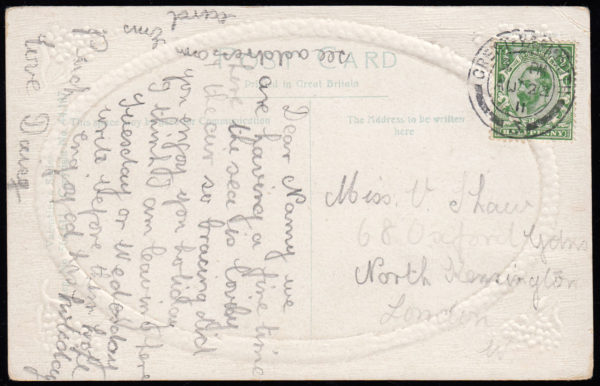 POST CARD
Printed in Great Britain
This space may be used for Communication
The Address to be written
here
HALFPENNY
Miss. V. Shaw
68 Oxford Gdns
North Kensington
London
W
Dear Namy we
are having a fine time
the sea is lovely
the air so bracing did
you enjoy you holiday
I think I am leaving here
Tuesday or Wednesday
write before I am
enjoyed the holiday
love
see address on
card